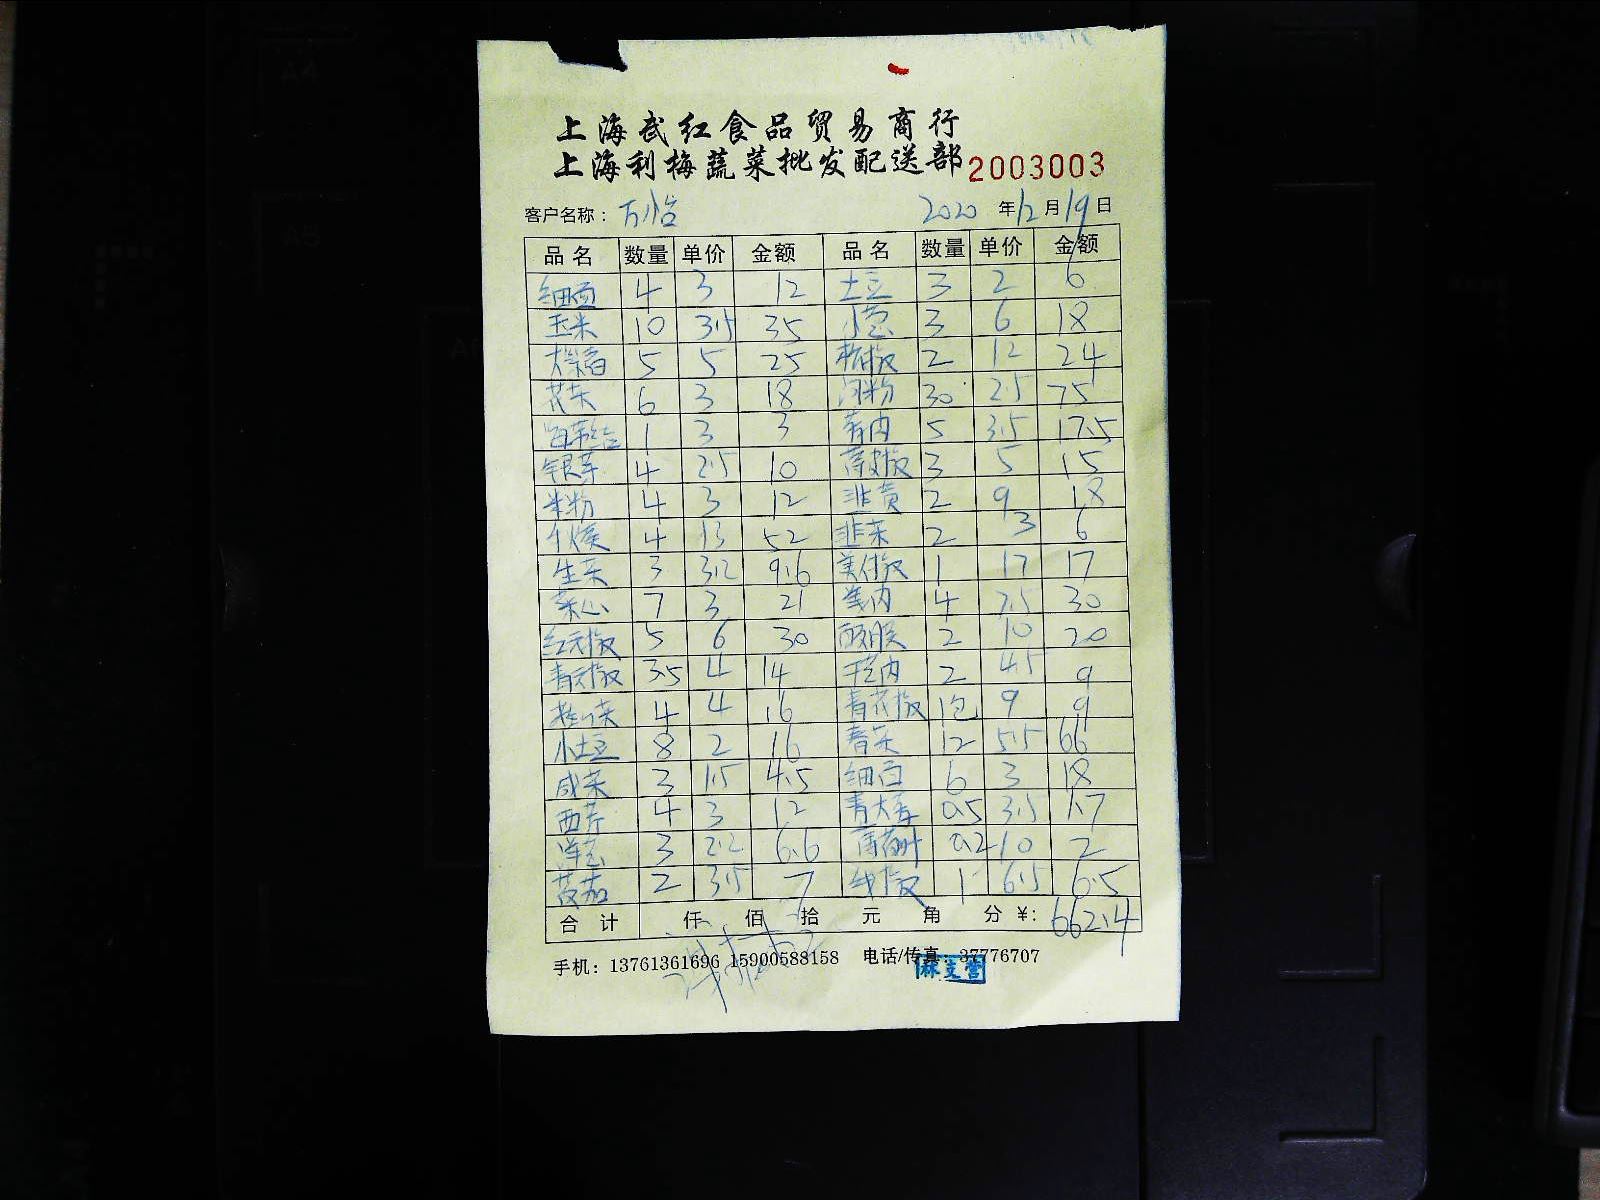 上海武红食品贸易商行
上海利梅蔬菜批发配送部 2003003
客户名称： 万怡 2020 年 12 月 19 日
品名 数量 单价 金额 品名 数量 单价 金额
细面 4 3 12 土豆 3 2 6
玉米 10 3.5 35 小葱 3 6 18
5 5 25 杭椒 2 12 24
花菜 6 3 18 河粉 30 2.5 75
海带结 1 3 3 5 3.5 17.5
银芽 4 2.5 10 3 5 15
米粉 4 3 12 韭黄 2 9 18
4 13 52 韭菜 2 3 6
生菜 3 3.2 9.6 1 17 17
菜心 7 3 21 4 7.5 30
红元椒 5 6 30 2 10 20
青元椒 3.5 4 14 2 4.5 9
4 4 16 青花椒 1包 9 9
小土豆 8 2 16 12 5.5 66
咸菜 3 1.5 4.5 细面 6 3 18
西芹 4 3 12 青大蒜 0.5 3.5 1.7
洋葱 3 2.2 6.6 薄荷叶 0.2 10 2
茭茄 2 3.5 7 线椒 1 6.5 6.5
合计 仟 佰 拾 元 角 分 ¥: 662.4
手机：13761361696 15900588158 电话/传真：37776707